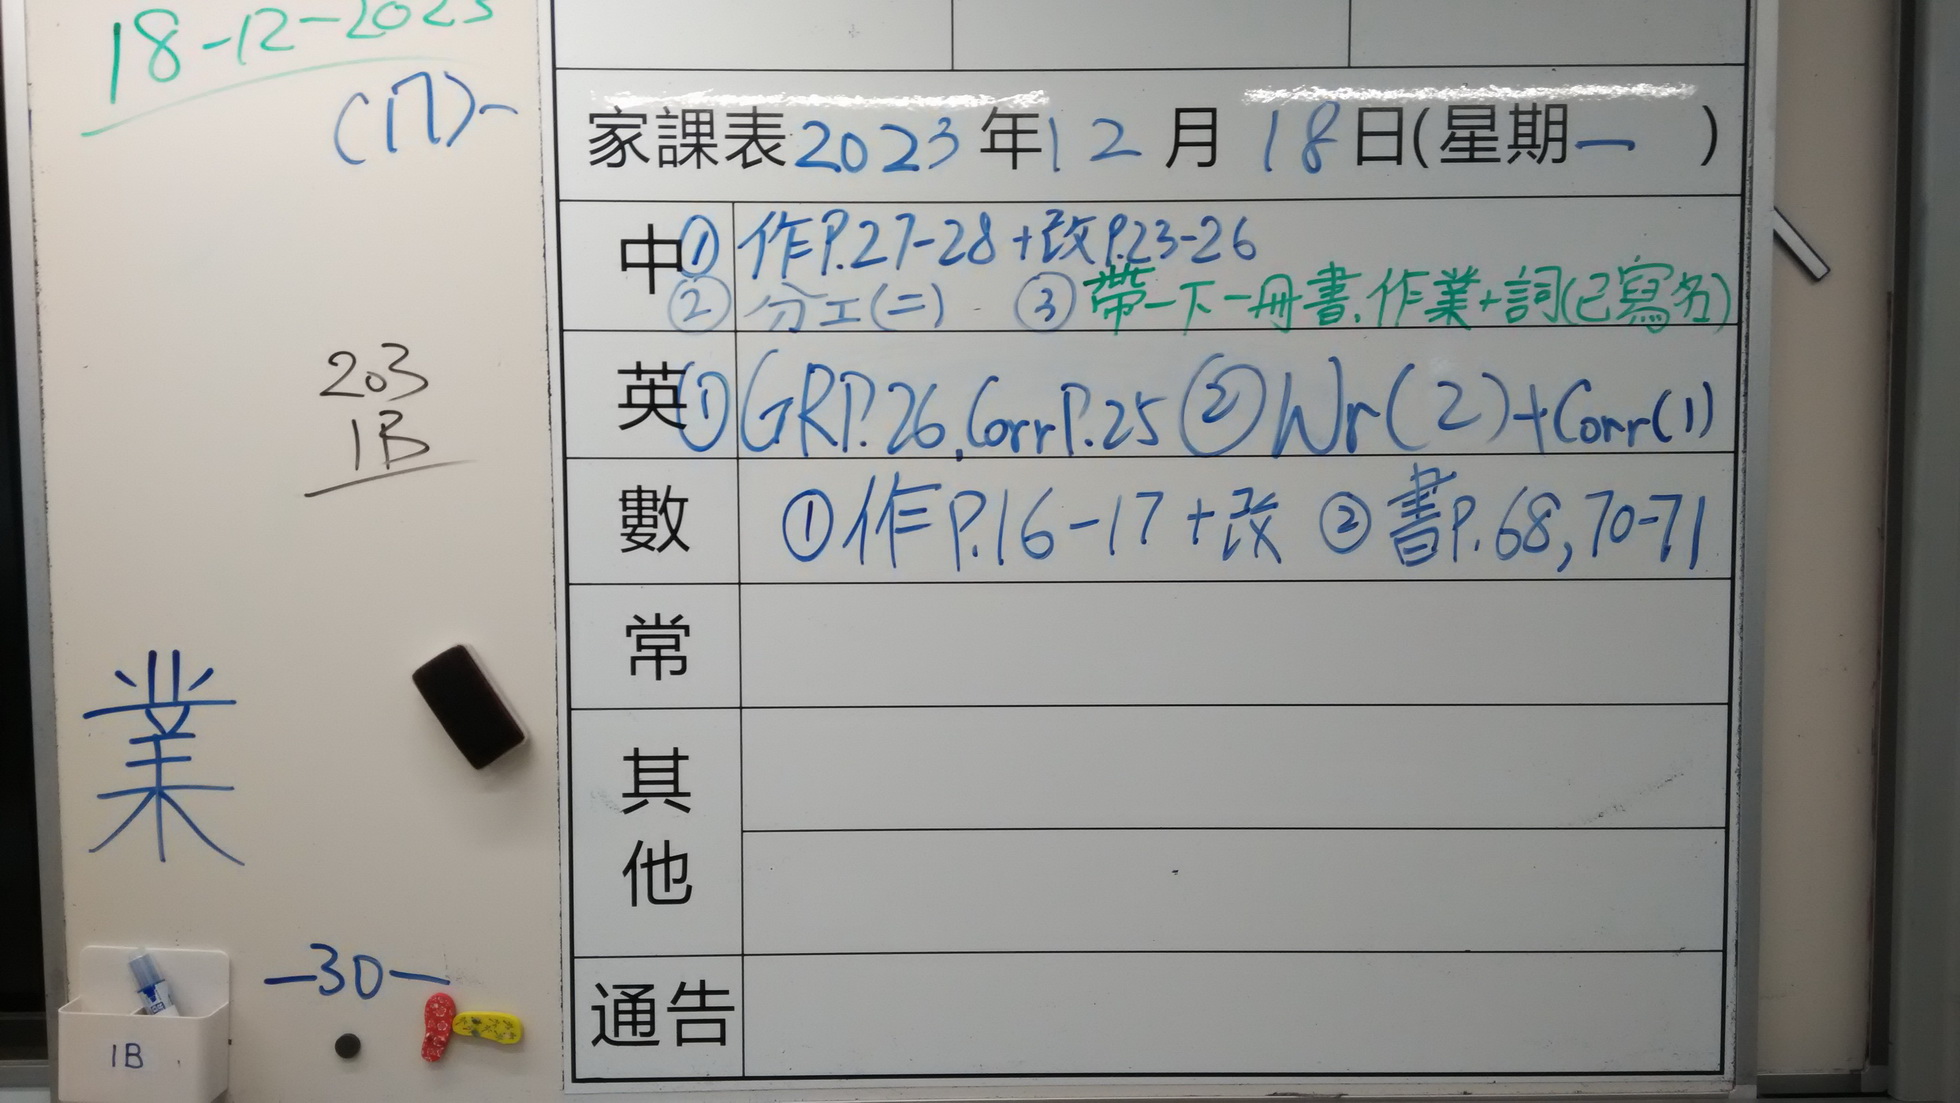 18-12-2023
(17)
家課表2023年12月18日(星期一)
中① 作P.27-28+改P.23-26
② 分工(二) ③帶一下一冊書.作業+詞(已寫名)
英① GRP.26,CorrP.25 ②Wr(2)+Corr(1)
數 ①作P.16-17+改 ②書P.68,70-71
常
其
他
通告
203
1B
業
-30-
1B